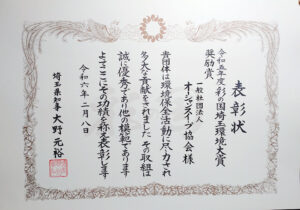 表彰状
令和五年度彩の国埼玉環境大賞
奨励賞
一般社団法人
協会様
貴団体は環境保全活動に尽力され
多大な貢献をされました その取組は
誠に優秀であり他の模範であります
よってここにその功績を称え表彰します
令和六年二月八日
埼玉県知事 大野元裕